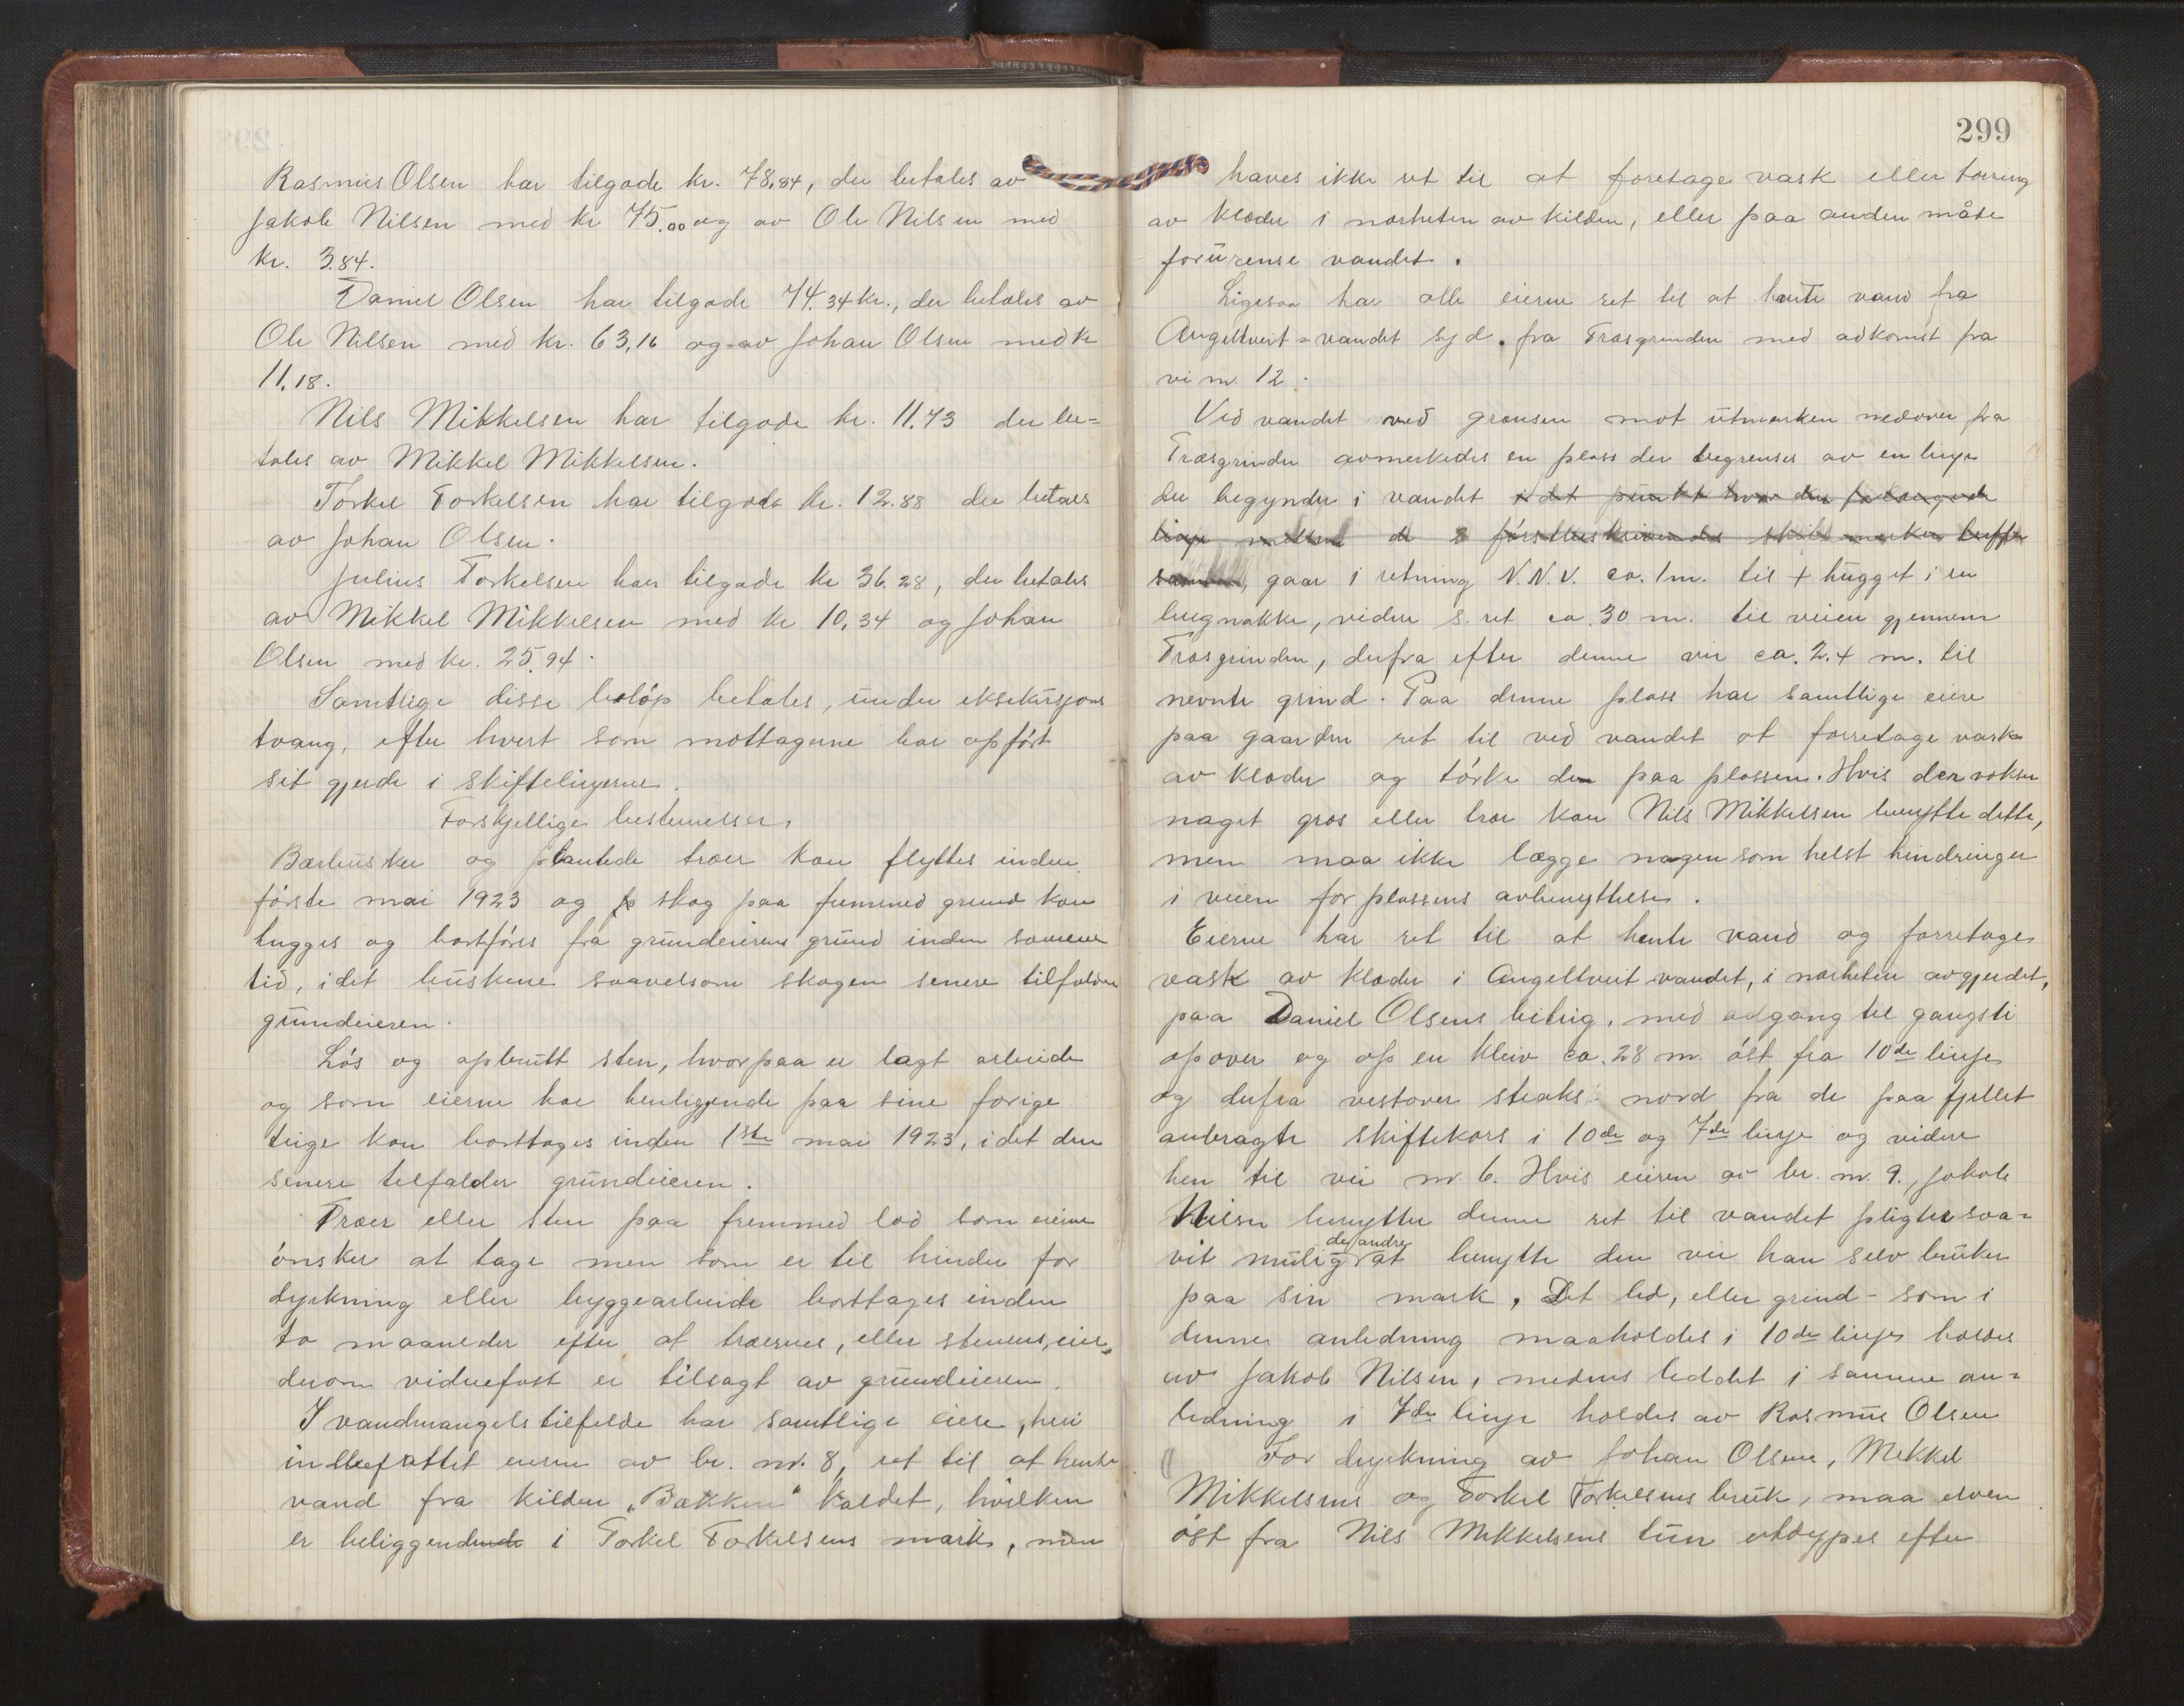 Rasmus Olsen har tilgode kr. 78,84, der betales av
Jakob Nilsen med kr 75.00 og av Ole Nilsen med
kr. 3.84.
Daniel Olsen har tilgode 74.34 kr., der betales av
Ole Nilsen med kr. 63,16 og av Johan Olsen med kr
11.18.
Nils Mikkelsen har tilgode kr. 11.43 der be=
tales av Mikkel Mikkelsen.
Torkel Torkelsen har tilgode kr. 12.88 der betales
av Johan Olsen.
Julius Torkelsen har tilgode kr 36.28, der betales
av Mikkel Mikkelsen med kr 10,34 og Johan
Olsen med kr. 25.94.
Samtlige disse beløp betales, under eksekusjons
tvang, efter hvert som mottagerne har opført
sit gjerde i skiftelinjerne.
Forskjellige bestemelser,
Bærbusker og plantede træer kan flyttes inden
første mai 1923 og skog paa fremmed grund kan
hugges og bortføres fra grundeierens grund inden samme
tid, idet buskene saavelsom skogen senere tilfalder
grundeieren.
Løs og opbrutt sten, hvorpaa er lagt arbeide
og som eierne har henliggende paa sine forige
teige kan borttages inden 1ste mai 1923, idet den
senere tilfalder grundeieren.
Træer eller sten paa fremmed lod som eierne
ønsker at tage men som er til hinder for
dyrkning eller byggearbeide borttages inden
to maaneder efter at træernes, eller stenens, eier,
derom vidnefast er tilsagt av grundeieren.
I vandmangelstilfelde har samtlige eiere, heri
indbefattet eierne av br. nr. 8, ret til at hente
vand fra kilden "Bakken" kaldet, hvilken
er beliggende i Torkel Torkelsens mark, men
299
haves ikke ret til at foretage vask eller tørring
av klæder i nærheten av kilden, eller paa anden måte
forurense vandet.
Ligesaa har alle eierne ret til at hente vand fra
Angeltveit=vandet syd. fra Træsgrinden med adkomst fra
vei nr. 12.
Ved vandet ved grænsen mot utmarken nedover fra
Træsgrinden avmerkedes en plass der begrenses av en linje
der begynder i vandet i det punkt hvor den forlængede
linje mellem de 2 førstbeskrivendes skiftemerker treffer
sammen, gaar i retning N.N.V. ca. 1m. til + hugget i en
bergnakke, videre s. ret ca. 30 m. til veien gjennem
Træsgrinden, derfra efter denne vei ca. 2.4 m. til
nevnte grind. Paa denne plass har samtlige eiere
paa gaarden ret til ved vandet at forretage vask
av klæder og tørke den paa plassen. Hvis der vokser
noget græs eller trær kan Nils Mikkelsen benytte dette,
men maa ikke lægge nogen som helst hindringer
i veien for plassens avbenyttelse.
Eierne har ret til at hente vand og forretage
vask av klæder i Angeltveit vandet, i nærheten av gjerdet,
paa Daniel Olsens biteig, med adgang til gangsti
opover og op en kleiv ca. 28 m. øst fra 10de linje
og derfra vestover straks nord fra de paa fjellet
anbragte skiftekors i 10de og 7de linje og videre
hen til vei nr 6. Hvis eieren av br. nr. 9, Jakob
Nilsen benytter denne ret til vandet pligter saa=
vit mulig de andre at benytte den vei han selv bruker
paa sin mark. Det led, eller grind - som i
denne anledning maa holdes i 10de linje holdes
av Jakob Nilsen, medens leddet i samme an=
ledning i 7de linje holdes av Rasmus Olsen
For dyrkning av Johan Olsens, Mikkel
Mikkelsens og Torkel Torkelsens bruk, maa elven
øst fra Nils Mikkelsens tun utdypes efter